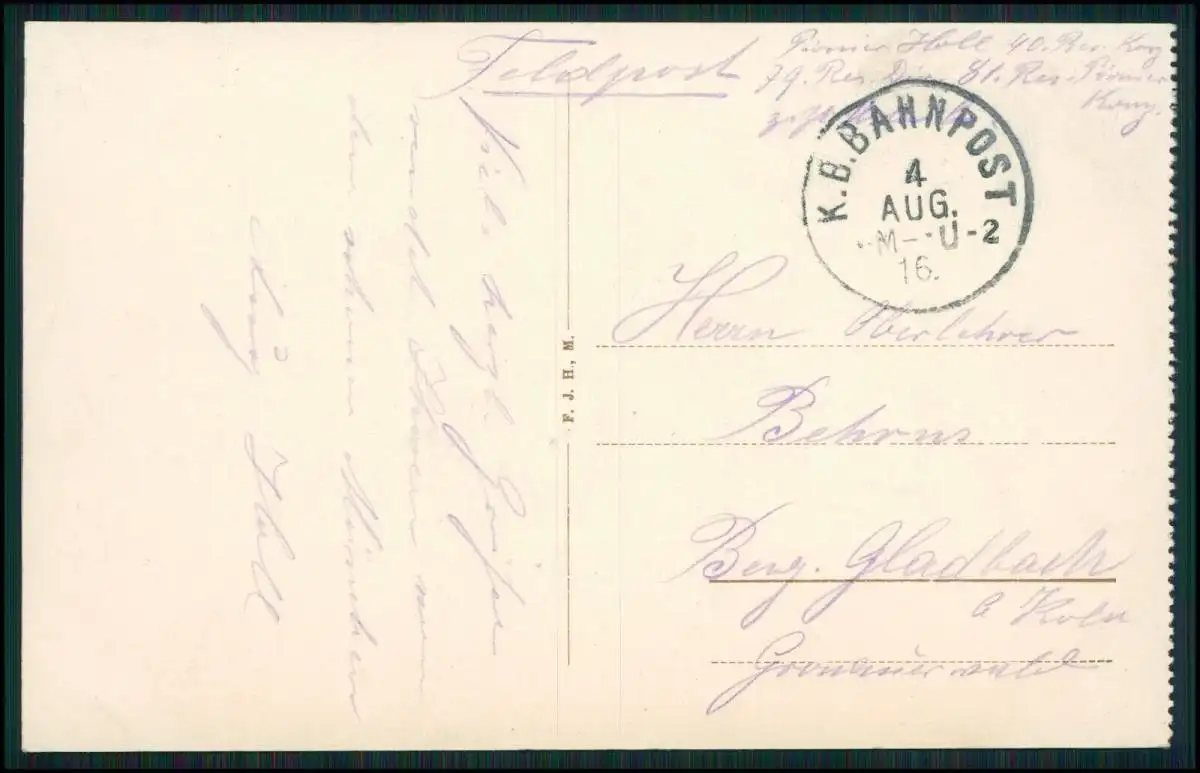 Feldpost
Pionier Holl 40. Res. Korp
79. Res. Div. 81. Res. Pionier
Komp.
K.B. BAHNPOST
4
AUG.
M-U-2
16.
Viele herzl. Grüße
sendet Ihnen
dem schönen München
Holl
F. J. H., M.
Herrn Oberlehrer
Behrns
Berg. Gladbach
b Köln
Gronauerwald